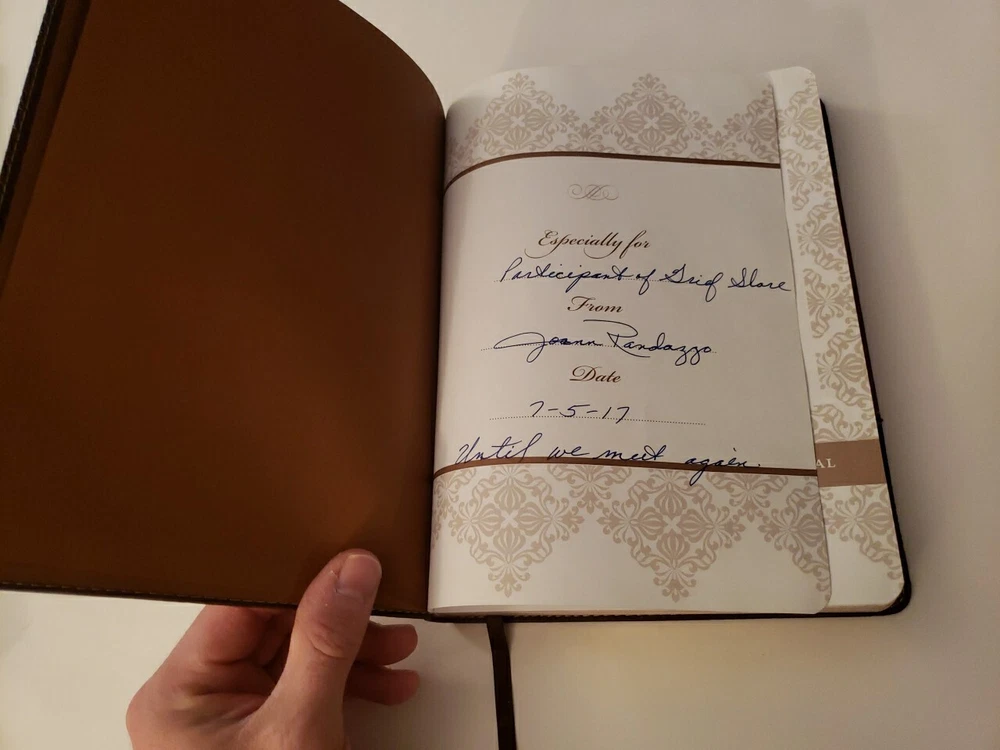 Especially for
Participant of Grief Share
From
Joann Randazzo
Date
7-5-17
Until we meet again.
AL